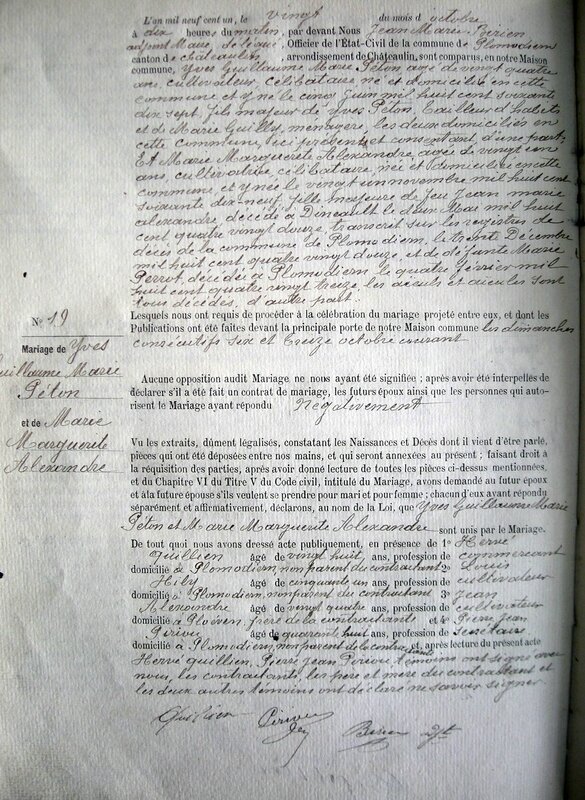 L'an mil neuf cent un, le vingt du mois d'octobre
à dix heures du matin, par devant Nous Jean Marie Birien
adjoint Maire, délégué, Officier de l'État-Civil de la commune de Plomodiern
canton de Châteaulin, arrondissement de Châteaulin, sont comparus, en notre Maison
commune, Yves Guillaume Marie Péton âgé de vingt quatre
ans, cultivateur, célibataire né et domicilié en cette
commune et y né le cinq Juin mil huit cent soixante
dix sept, fils majeur de Yves Péton, tailleur d'habits
et de Marie Guilly, ménagère, les deux domiciliés en
cette commune, ici présents et consentant, d'une part
Et Marie Marguerite Alexandre, âgée de vingt un
ans, cultivatrice, célibataire, née et domiciliée en cette
commune et y née le vingt un novembre mil huit cent
soixante dix-neuf, fille majeure de feu Jean marie
alexandre, décédé à Dinéault le deux Mai mil huit
cent quatre vingt douze, transcrit sur les registres de
décès de la commune de Plomodiern, le trente Décembre
mil huit cent quatre vingt douze, et de défunte Marie
Perrot, décédée à Plomodiern le quatre février mil
huit cent quatre vingt treize, les aïeuls et aïeules sont
tous décédés, d'autre part.
Lesquels nous ont requis de procéder à la célébration du mariage projeté entre eux, et dont les
Publications ont été faites devant la principale porte de notre Maison commune les dimanches
consécutifs six et treize octobre courant
N° 19
Mariage de Yves
Guillaume Marie
Péton
et de Marie
Marguerite
Alexandre
Aucune opposition audit Mariage ne nous ayant été signifiée ; après avoir été interpellés de
déclarer s'il a été fait un contrat de mariage, les futurs époux ainsi que les personnes qui auto-
risent le Mariage ayant répondu Négativement
Vu les extraits, dûment légalisés, constatant les Naissances et Décès dont il vient d'être parlé,
pièces qui ont été déposées entre nos mains, et qui seront annexées au présent ; faisant droit à
la réquisition des parties, après avoir donné lecture de toutes les pièces ci-dessus mentionnées,
et du Chapitre VI du Titre V du Code civil, intitulé du Mariage, avons demandé au futur époux
et à la future épouse s'ils veulent se prendre pour mari et pour femme ; chacun d'eux ayant répondu
séparément et affirmativement, déclarons, au nom de la Loi, que Yves Guillaume Marie
Péton et Marie Marguerite Alexandre sont unis par le Mariage.
De tout quoi nous avons dressé acte publiquement, en présence de 1° Hervé
Quillien âgé de vingt huit, ans, profession de commerçant
domicilié à Plomodiern, non parent du contractant 2° Louis
Hily âgé de cinquante un ans, profession de cultivateur
domicilié à Plomodiern, non parent du contractant 3° Jean
Alexandre âgé de vingt quatre ans, profession de cultivateur
domicilié à Ploéven, frère de la contractante et le Pierre Jean
Piriou âgé de quarante huit ans, profession de Secrétaire
domicilié à Plomodiern, non parent de la contractante et, après lecture du présent acte
Hervé Quillien, Pierre Jean Piriou témoins ont signé avec
nous, les contractants, les père et mère du contractant et
les deux autres témoins ont déclaré ne savoir signer
Quillien Piriou Birien adjt